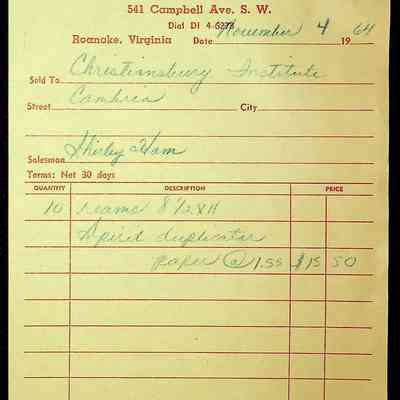 541 Campbell Ave. S. W.
Dial DI 4-6278
Roanoke, Virginia Date November 4 1964
Sold To Christiansburg Institute
Street Cambria City
Salesman Shirley Ham
Terms: Net 30 days
QUANTITY DESCRIPTION PRICE
10 reams 8 1/2 x 11
Spirit duplicator
paper @ 1.55 $15 50